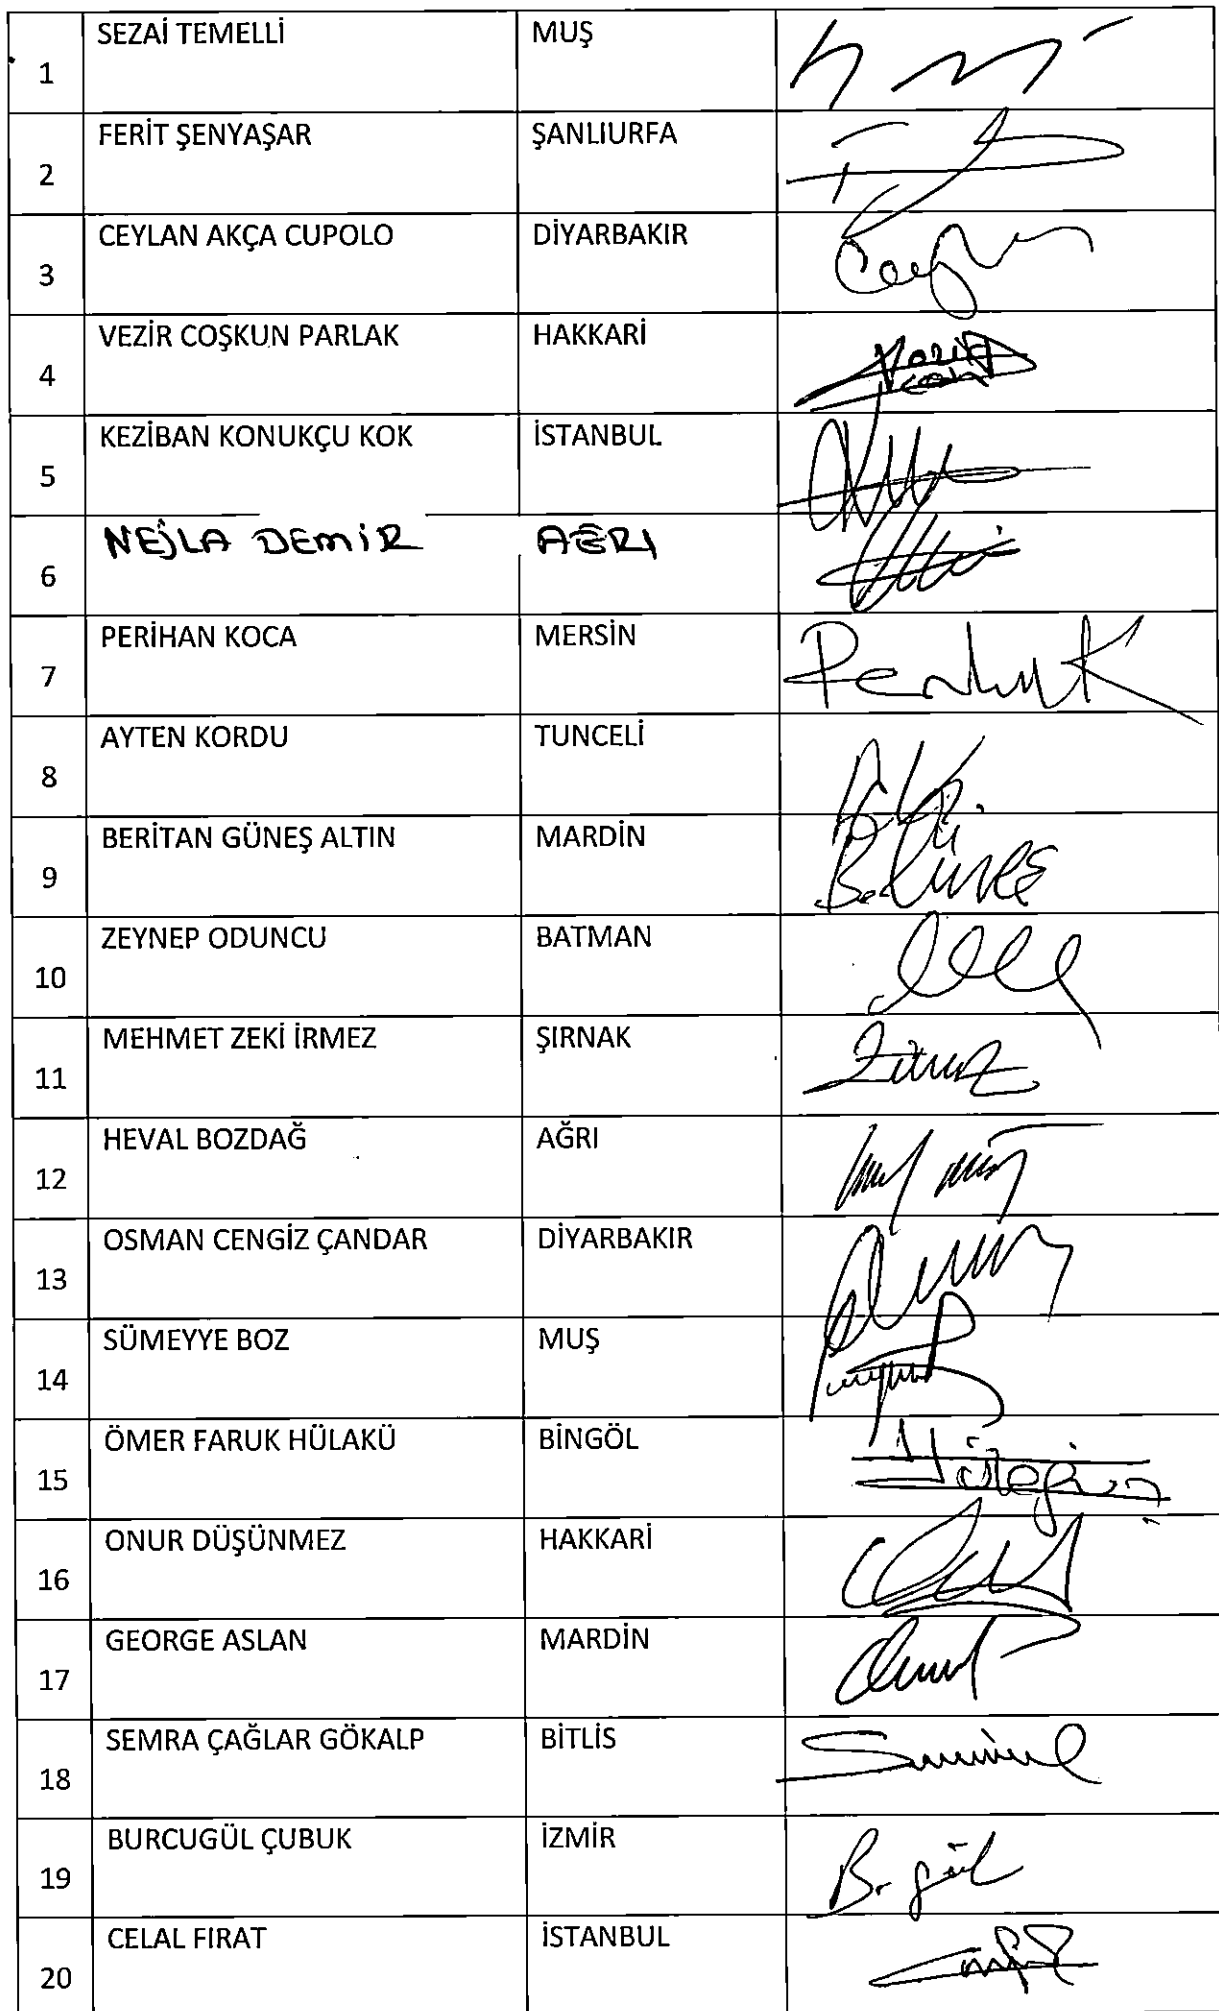 1 SEZAİ TEMELLİ MUŞ
2 FERİT ŞENYAŞAR ŞANLIURFA
3 CEYLAN AKÇA CUPOLO DİYARBAKIR
4 VEZİR COŞKUN PARLAK HAKKARİ
5 KEZİBAN KONUKÇU KOK İSTANBUL
6 NEJLA DEMİR AĞRI
7 PERİHAN KOCA MERSİN
8 AYTEN KORDU TUNCELİ
9 BERİTAN GÜNEŞ ALTIN MARDİN B. Güneş
10 ZEYNEP ODUNCU BATMAN
11 MEHMET ZEKİ İRMEZ ŞIRNAK
12 HEVAL BOZDAĞ AĞRI
13 OSMAN CENGİZ ÇANDAR DİYARBAKIR
14 SÜMEYYE BOZ MUŞ
15 ÖMER FARUK HÜLAKÜ BİNGÖL
16 ONUR DÜŞÜNMEZ HAKKARİ
17 GEORGE ASLAN MARDİN
18 SEMRA ÇAĞLAR GÖKALP BİTLİS
19 BURCUGÜL ÇUBUK İZMİR B. gül
20 CELAL FIRAT İSTANBUL